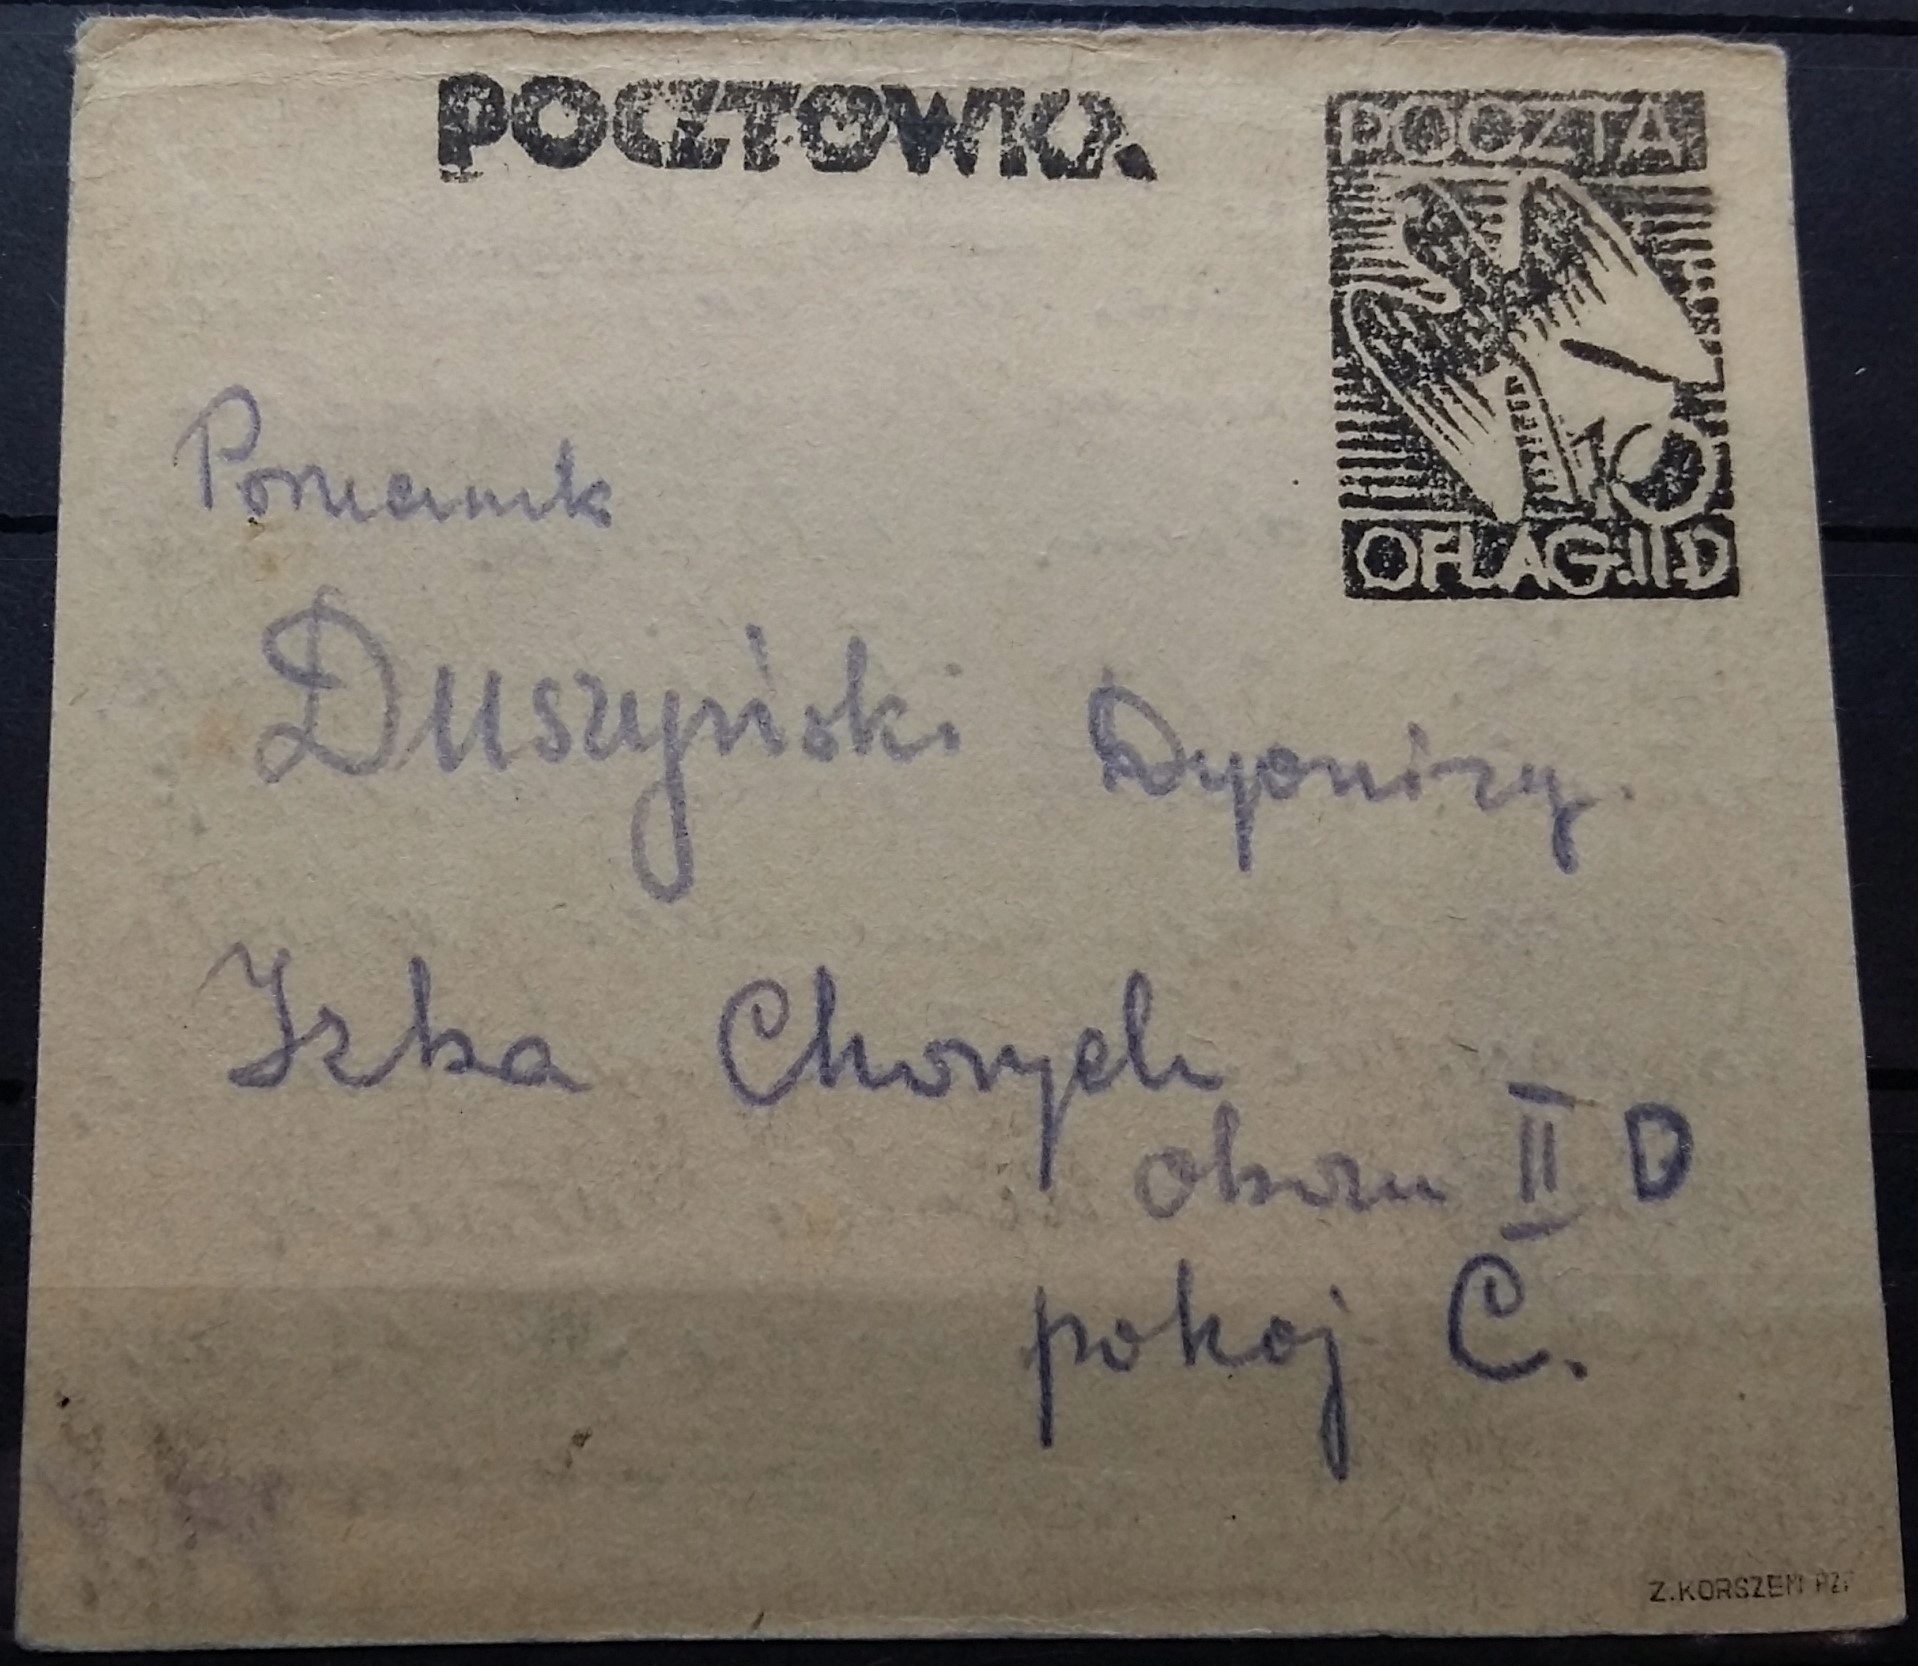 POCZTOWKA
POCZTA
10
OFLAG·II·D
Porucznik
Duszyński Dyonizy.
Izba Chorych
obozu II D
pokoj C.
Z.KORSZEŃ PZP